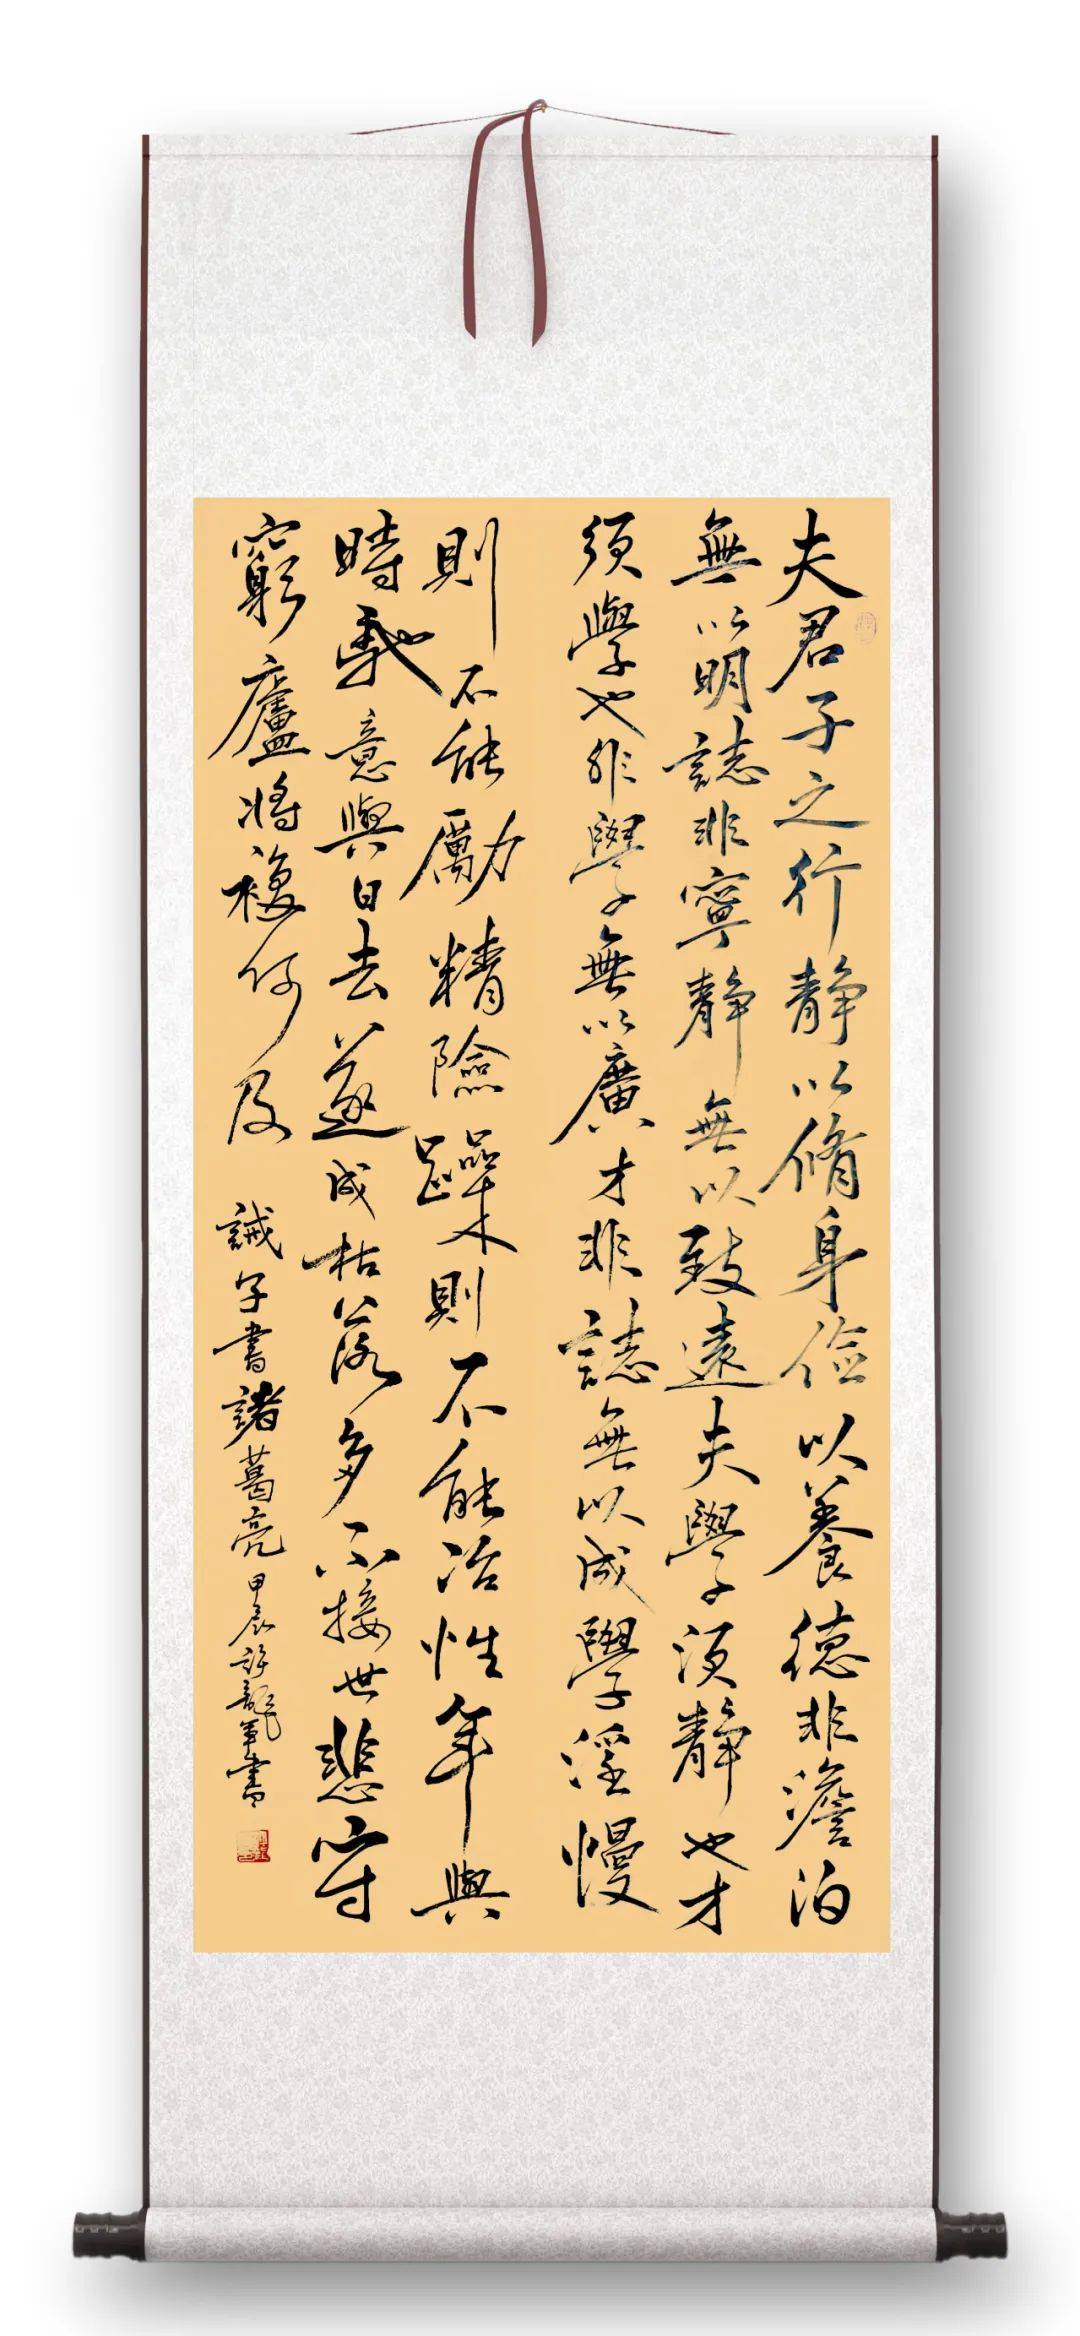 夫君子之行靜以脩身儉以養德非澹泊
無以明誌非寧靜無以致遠夫學須靜也才
須學也非學無以廣才非誌無以成學淫慢
則不能勵精險躁則不能冶性年與
時馳意與日去遂成枯落多不接世悲守
窮廬將複何及
誡子書諸葛亮甲辰許龍軍書